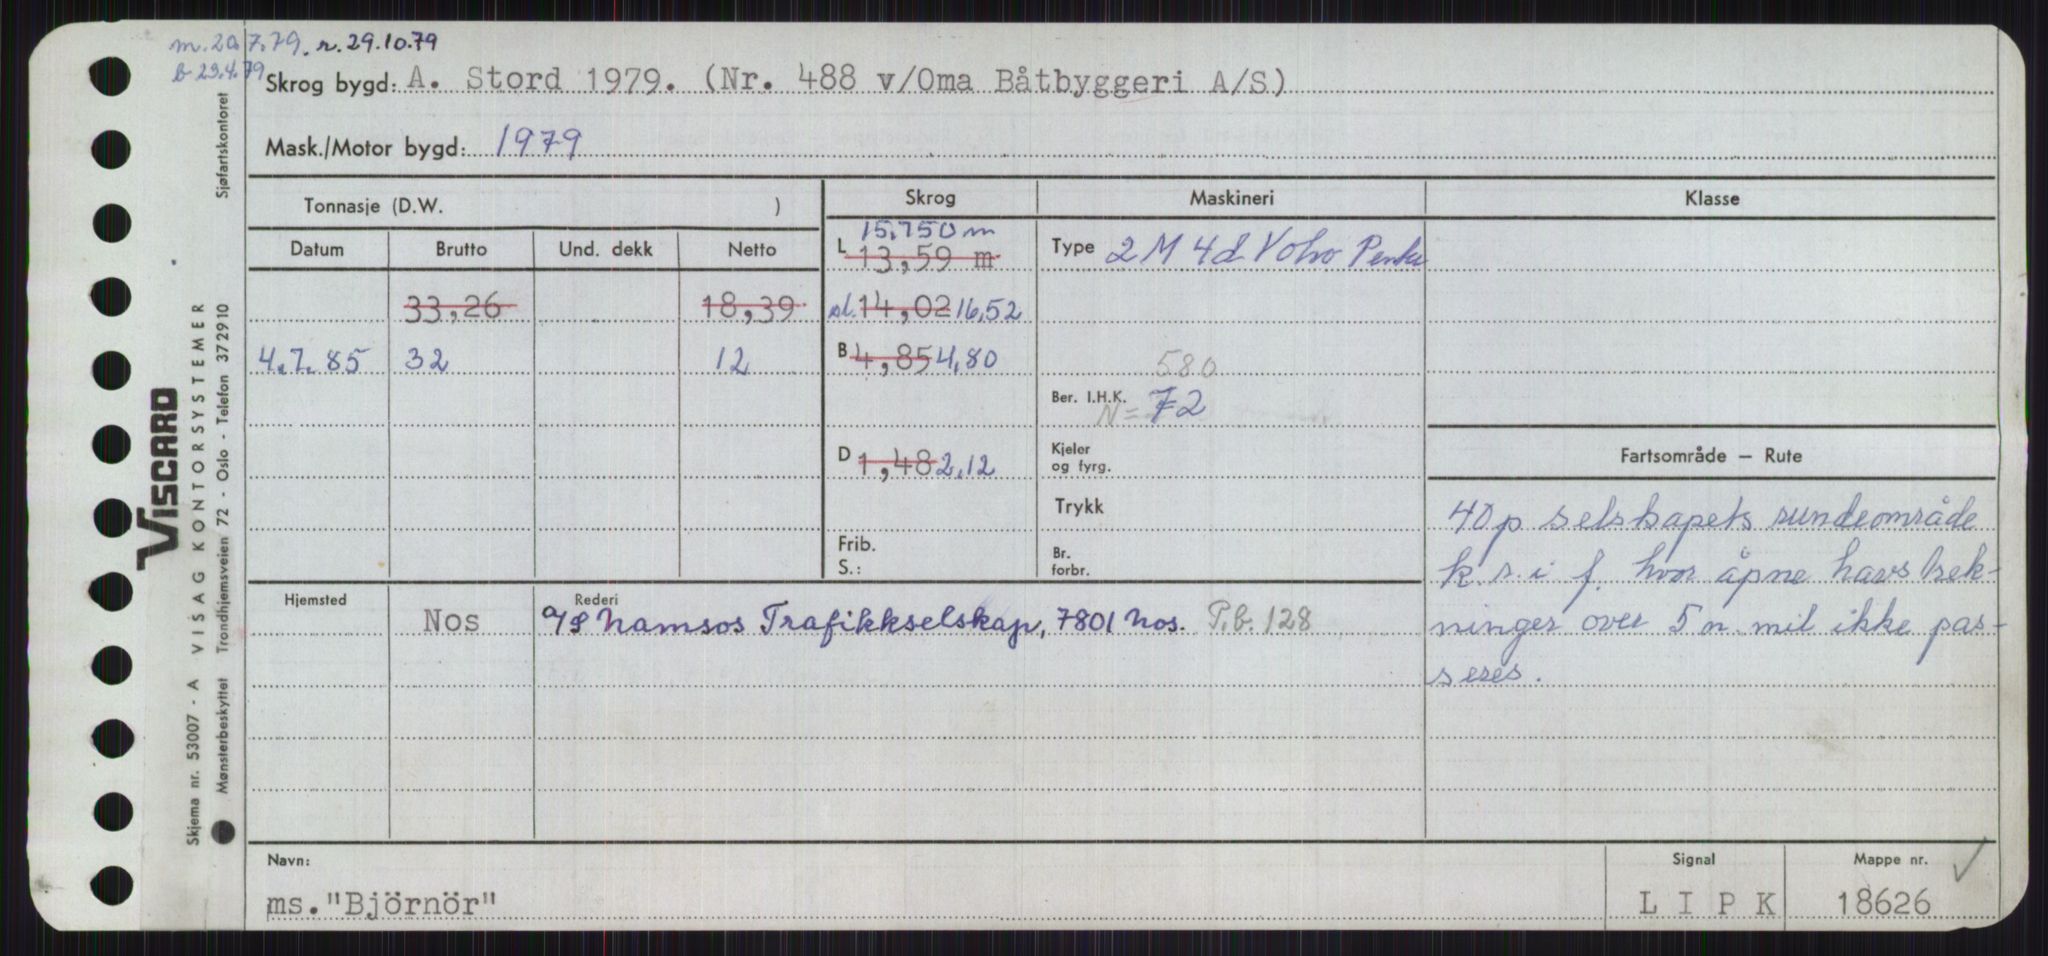 m. 20.7.79. r. 29.10.79
b 23.4.79
Skrog bygd: A. Stord 1979. (Nr. 488 v/Oma Båtbyggeri A/S)
Mask./Motor bygd: 1979
Tonnasje (D.W. )
Skrog Maskineri Klasse
Datum Brutto Und. dekk Netto
15,750 m
L 13,59 m
Type 2 M 4d Volvo Penta
33,26 18,39
sl. 14,02 16,52
4.7.85 32 12
B 4,85 4,80
580
Ber. I.H.K. N= 72
D 1,48 2,12
Kjeler
og fyrg.
Trykk
Frib.
S.:
Br.
forbr.
Fartsområde – Rute
40 p selskapets rundeområde
k.s.i f. hvor åpne havstrek-
ninger over 5 n. mil ikke pas-
seres.
Hjemsted Rederi
Nos A/S Namsos Trafikkselskap, 7801 Nos. P.b. 128
Navn:
ms. "Björnör"
Signal
L I P K
Mappe nr.
18626
Sjøfartskontoret
VISCARD
Skjema nr. 53007 - A VISAG KONTORSYSTEMER
Mønsterbeskyttet Trondhjemsveien 72 - Oslo - Telefon 372910